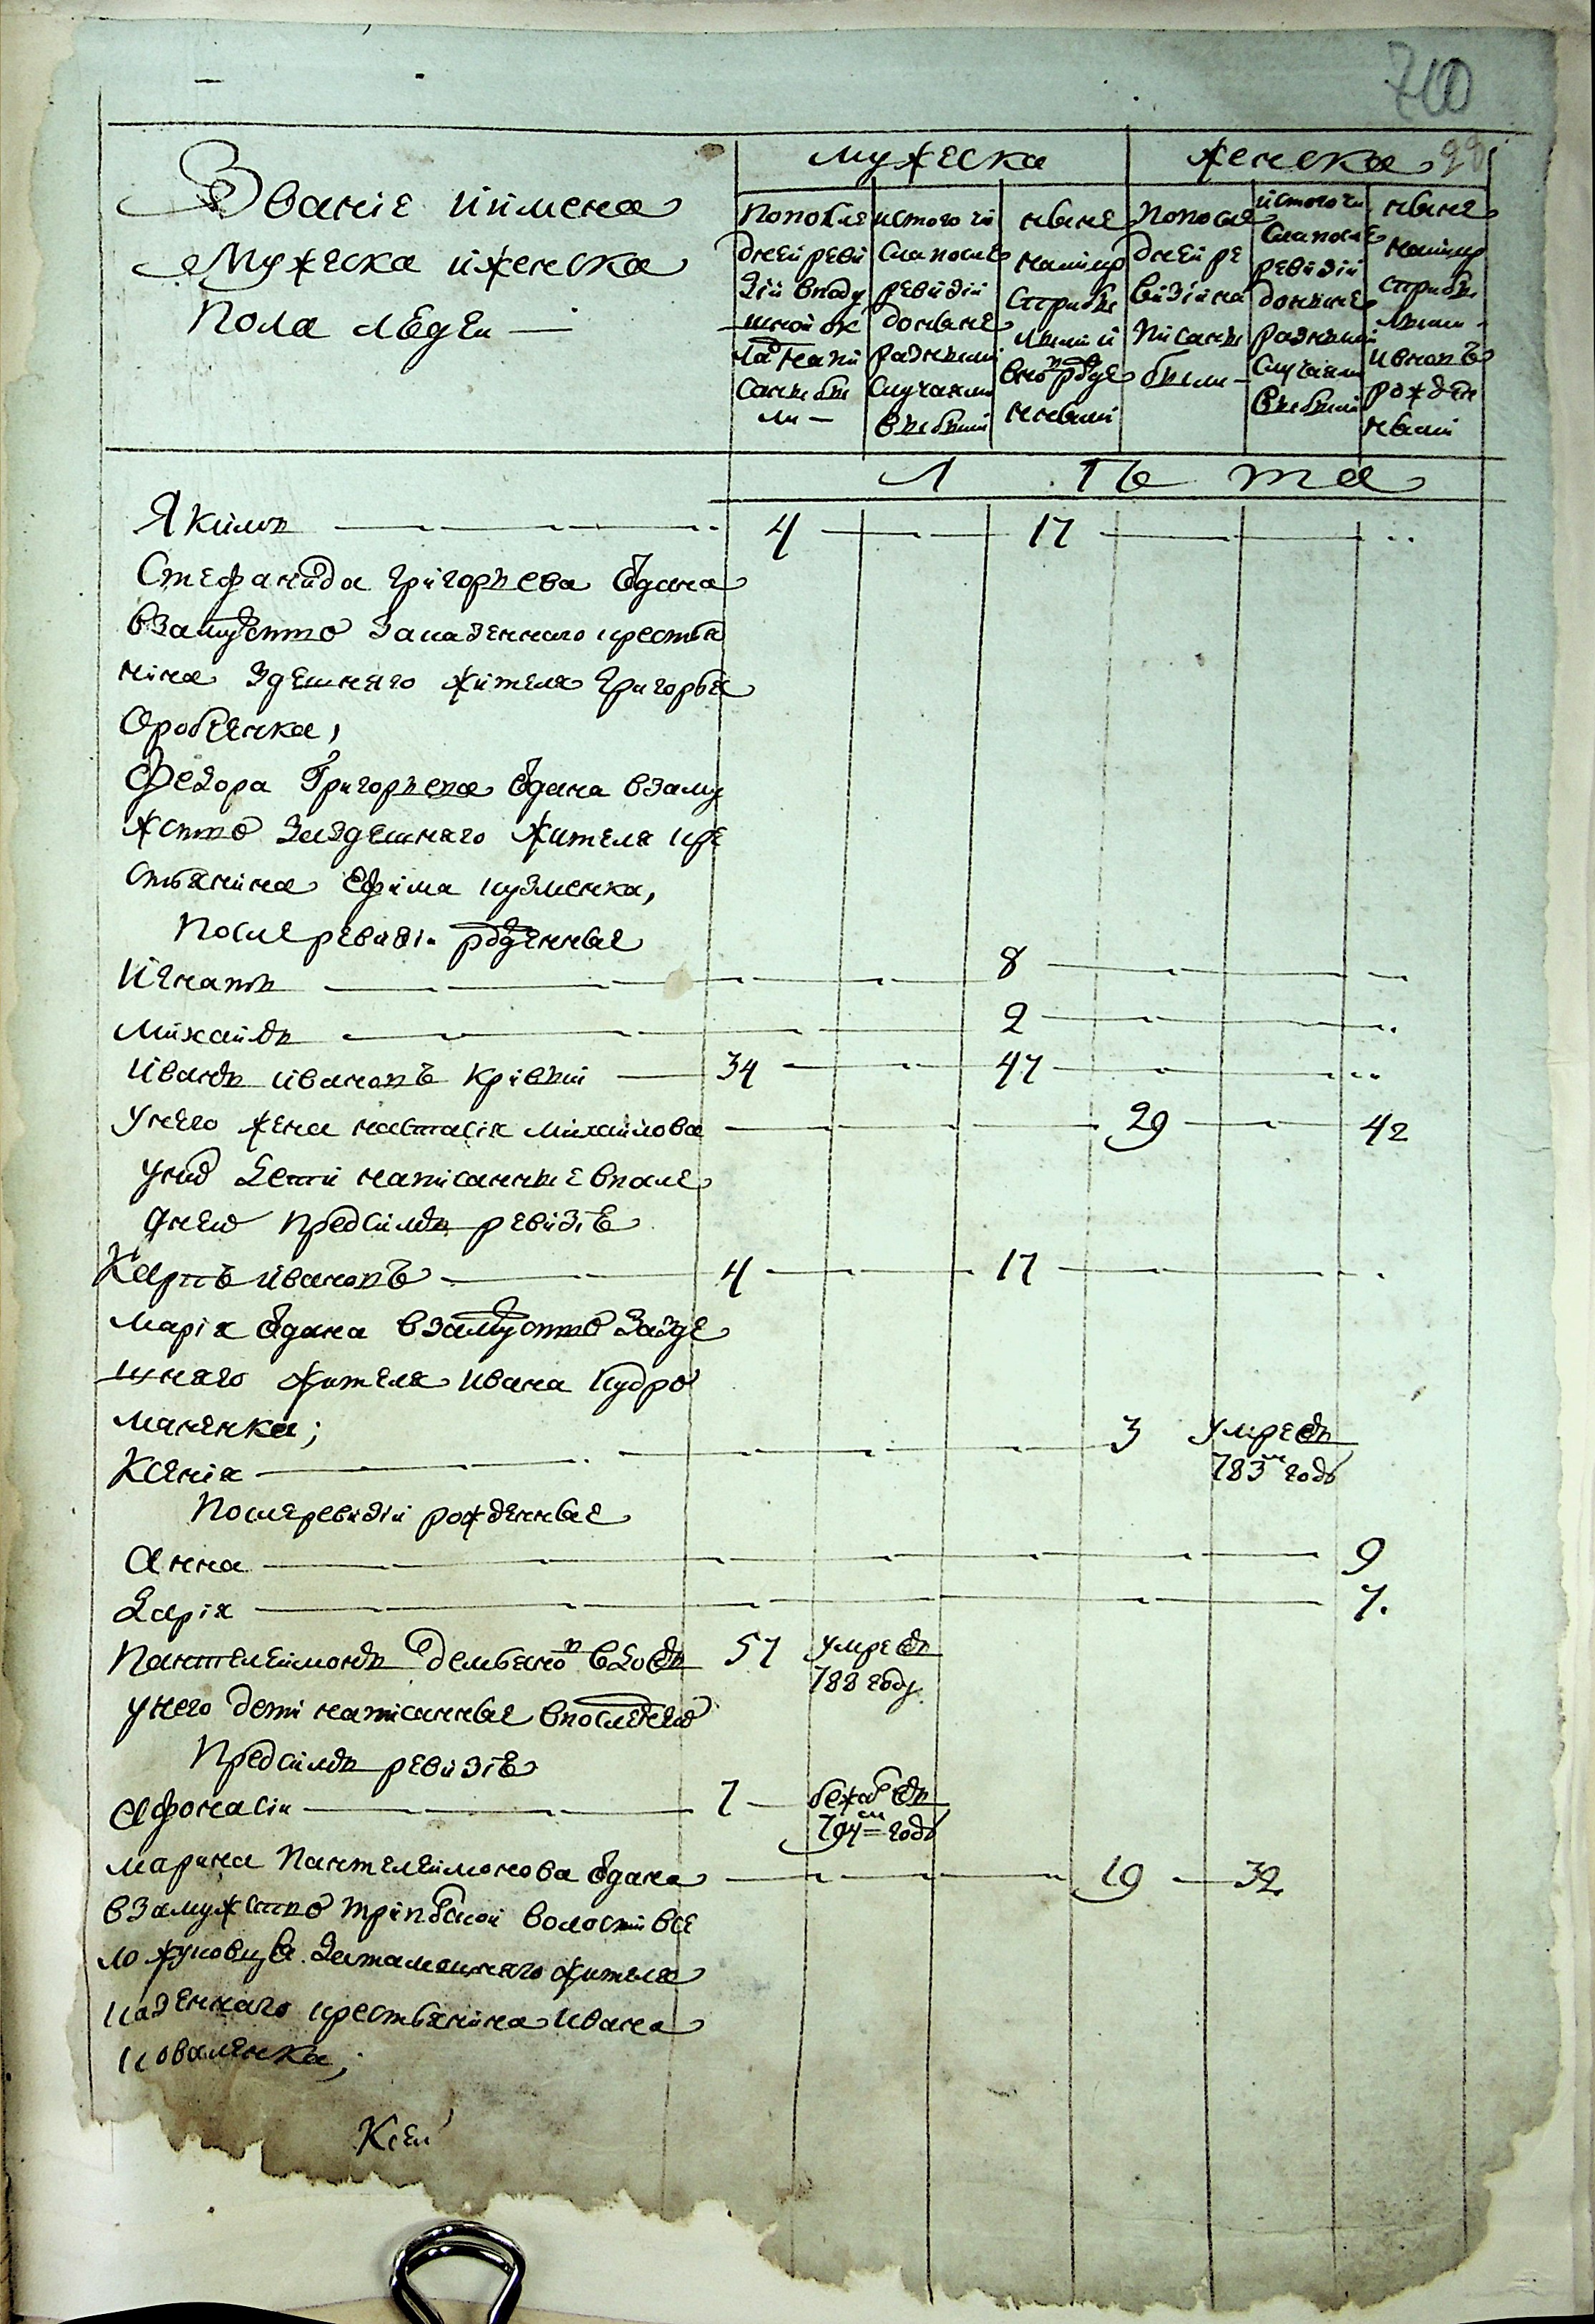 700
99
мужеска
женска
Званіе иимена
Мужеска иженска
Пола людеи —
Попосле
днеи реви
зіи вподу
шнои ок
ладъ напи
саны бы
ли —
истого чи
сла после
ревизіи
доныне
разными
случаями
выбыли
ныне
налицо
сприбы
лыми и
вно рожде
нными
Попосле
днеи ре
визіи на
писаны
были —
истого чи
сла после
ревизіи
доныне
разными
случаями
выбыли
ныне
налицо
сприбы
лыми
ивновъ
рожден
ными
Л ѣ та
Якимъ 4 17
Стефанида Григорьева Ѿдана
взамужство за казенного крестья
нина здешняго жителя Григорья
Оробченка,
Федора Григорьева Ѿдана взаму
жство заздешняго жителя кре
стьянина Ефима кузменка,
После ревизіи рожденные
Игнатъ 8
Михаилъ 2
Иванъ ивановъ кривыи 34 47
Унего жена настасія михаилова 29 42
Унихъ дети написанные впосле
днею предсимъ ревизіею
Карпъ ивановъ 4 17
марія Ѿдана взамужство зазде
шнего жителя ивана кудро
маненка;
Ксенія 3 умре въ
783м годѣ
После ревизіи рожденные
Анна 9
Дарія 7.
Пантелеимонъ демьяновъ вдовъ 57 умре въ
788 году
унего дети написанные впоследнею
Предсимъ ревизіею
Афонасіи 7 бежал въ
794м годѣ
марина Пантелеимонова Ѿдана 19 32
взамужство трипольскои волости все
ло жуковцы. Затамошнего жителя
казенного крестьянина ивана
коваленка;
Ксеи